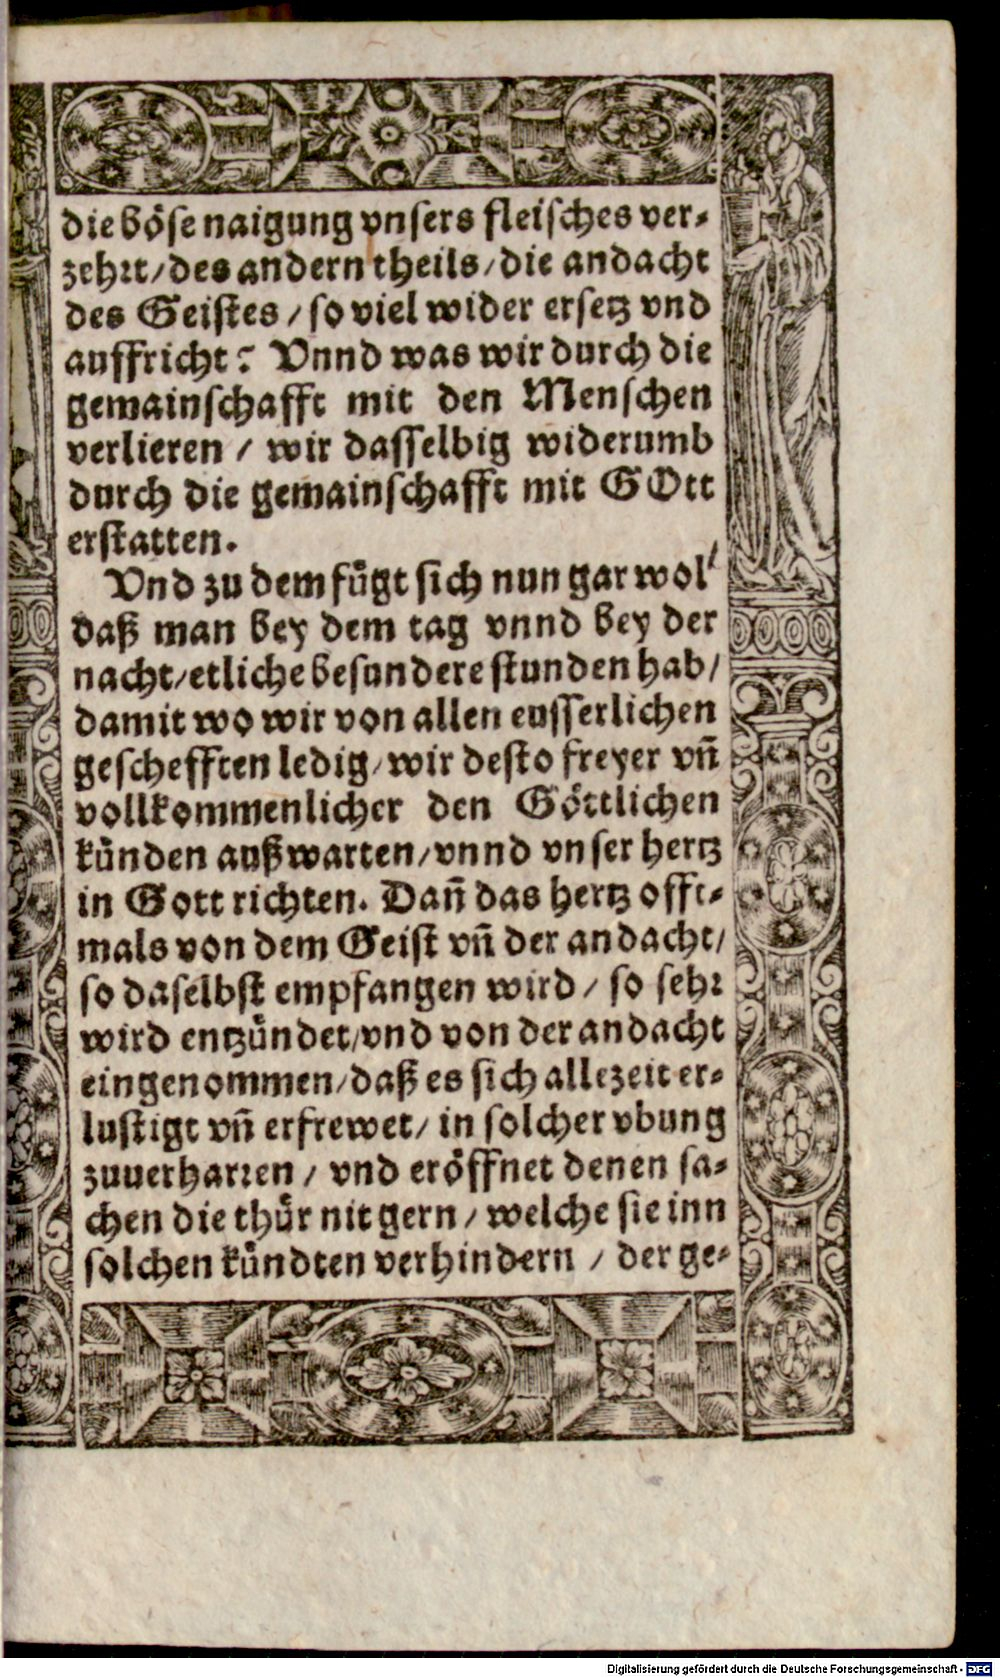 die böse naigung vnsers fleisches ver-
zehrt/ des andern theils/ die andacht
des Geistes / so viel wider ersetz vnd
auffricht? Vnnd was wir durch die
gemainschafft mit den Menschen
verlieren / wir dasselbig widerumb
durch die gemainschafft mit GOtt
erstatten.
Vnd zu dem fügt sich nun gar wol/
daß man bey dem tag vnnd bey der
nacht/ etliche besondere stunden hab/
damit wo wir von allen eusserlichen
geschefften ledig/ wir desto freyer vñ
vollkommenlicher den Göttlichen
künden außwarten/ vnnd vnser hertz
in Gott richten. Dañ das hertz offt-
mals von dem Geist vñ der andacht/
so daselbst empfangen wird / so sehr
wird entzündet/ vnd von der andacht
eingenommen/ daß es sich allezeit er-
lustigt vñ erfrewet/ in solcher vbung
zuuerharren / vnd eröffnet denen sa-
chen die thür nit gern / welche sie inn
solchen kündten verhindern / der ge-
Digitalisierung gefördert durch die Deutsche Forschungsgemeinschaft - DFG